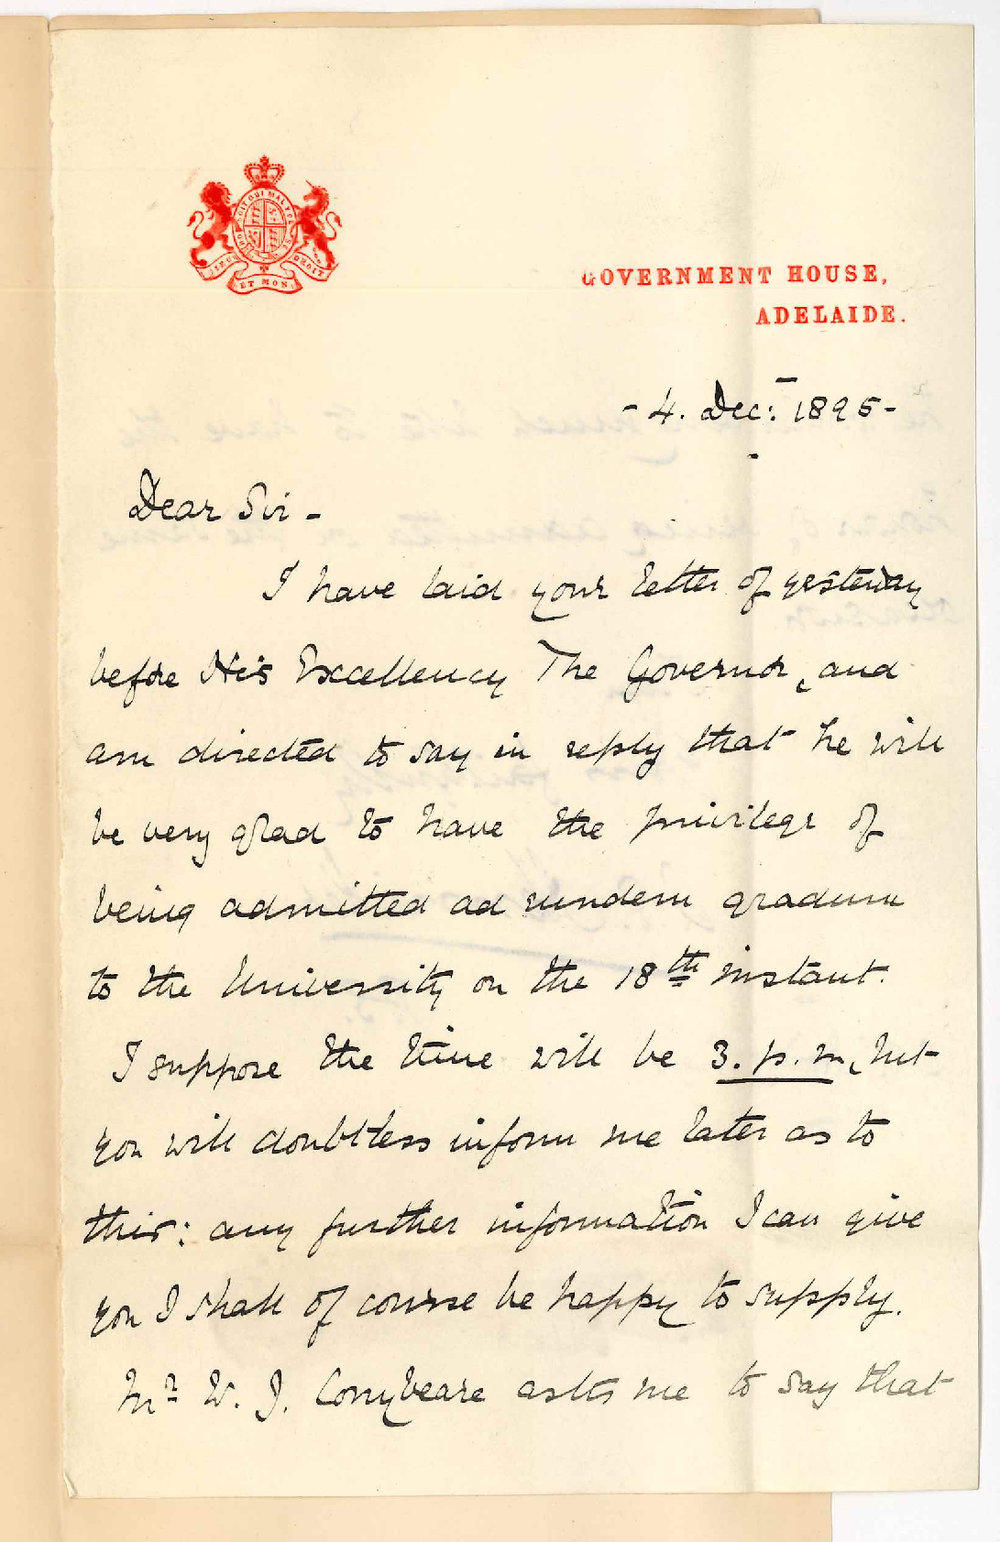 HONI SOIT QUI MAL Y PENSE
DIEU ET MON DROIT
GOVERNMENT HOUSE,
ADELAIDE.
- 4. Dec: 1895 -
Dear Sir -
I have laid your letter of yesterday
before His Excellency The Governor, and
am directed to say in reply that he will
be very glad to have the privilege of
being admitted ad eundem gradum
to the University on the 18th instant.
I suppose the time will be 3. p.m, but
you will doubtless inform me later as to
this: any further information I can give
you I shall of course be happy to supply.
Mr W. J. Conybeare asks me to say that